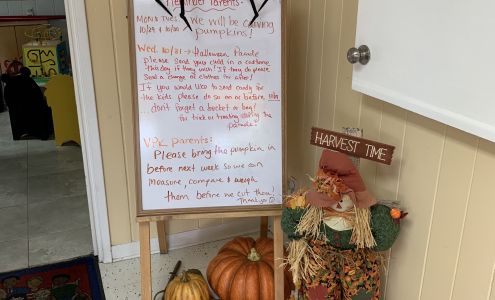 Reminder Parents:
MON & TUES We will be carving
10/29 & 10/30 pumpkins!
Wed. 10/31 → Halloween Parade
please send your child in a costume
this day if they wish! If they do please
send a change of clothes for after!
If you would like to send candy for
the kids please do so on or before
... don't forget a bucket or bag!
for trick or treating during the
parade!
VPK parents:
Please bring the pumpkin in
before next week so we can
measure, compare & weigh
them before we cut them!
Thank you
HARVEST TIME